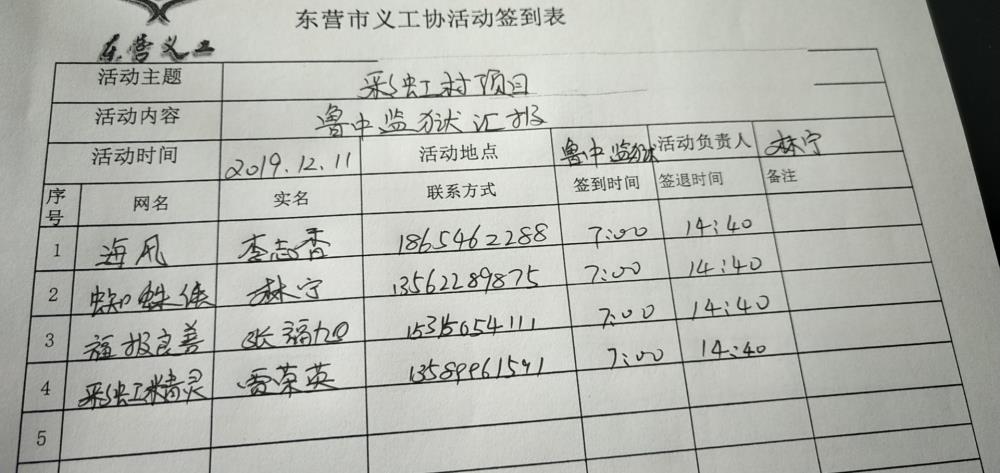 东营市义工协活动签到表
东营义工
活动主题 彩虹村项目
活动内容 鲁中监狱汇报
活动时间 2019.12.11 活动地点 鲁中监狱 活动负责人 林宁
序号 网名 实名 联系方式 签到时间 签退时间 备注
1 海风 李志香 18654622288 7:00 14:40
2 蜘蛛侠 林宁 13562289875 7:00 14:40
3 福报良善 张福 15315054111 7:00 14:40
4 彩虹精灵 荣英 13589961591 7:00 14:40
5